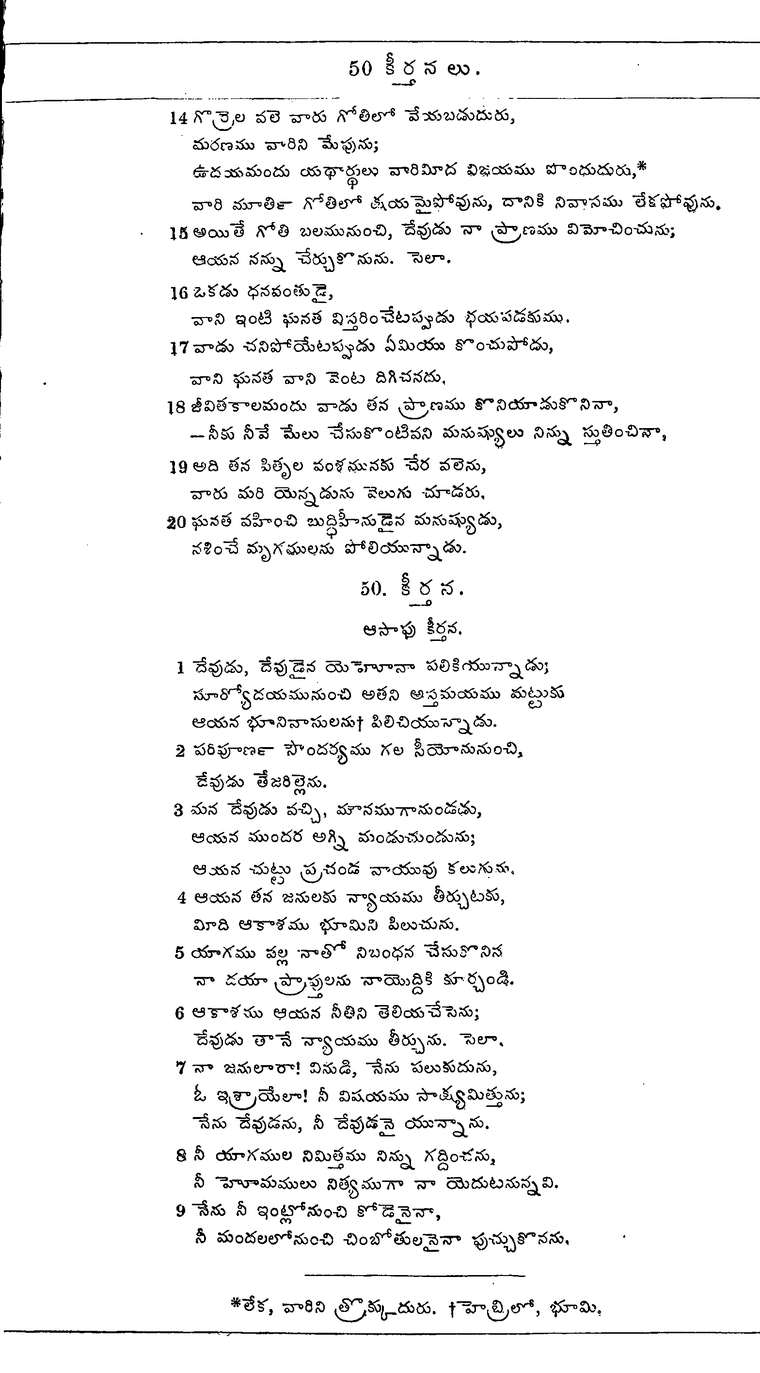 50 కీర్తనలు.
14 గొర్రెల వలె వారు గోతిలో వేయబడుదురు,
మరణము వారిని మేపును;
ఉదయమందు యథార్థులు వారిమీద విజయము పొందుదురు,*
వారి మూర్తి గోతిలో క్షయమైపోవును, దానికి నివాసము లేకపోవును.
15 అయితే గోతి బలమునుంచి, దేవుడు నా ప్రాణము విమోచించును;
ఆయన నన్ను చేర్చుకొనును. సెలా.
16 ఒకడు ధనవంతుడై,
వాని ఇంటి ఘనత విస్తరించేటప్పుడు భయపడకుము.
17 వాడు చనిపోయేటప్పుడు ఏమియు కొంచుపోదు,
వాని ఘనత వాని వెంట దిగిచనదు.
18 జీవితకాలమందు వాడు తన ప్రాణము కొనియాడుకొనినా,
—నీకు నీవే మేలు చేసుకొంటివని మనుష్యులు నిన్ను స్తుతించినా,
19 అది తన పితృల వంశమునకు చేర వలెను,
వారు మరి యెన్నడును వెలుగు చూడరు.
20 ఘనత వహించి బుద్ధిహీనుడైన మనుష్యుడు,
నశించే మృగములను పోలియున్నాడు.
50. కీర్తన.
ఆసాఫు కీర్తన.
1 దేవుడు, దేవుడైన యెహోవా పలికియున్నాడు;
సూర్యోదయమునుంచి అతని అస్తమయము మట్టుకు
ఆయన భూనివాసులను† పిలిచియున్నాడు.
2 పరిపూర్ణ సౌందర్యము గల సీయోనునుంచి,
దేవుడు తేజరిల్లెను.
3 మన దేవుడు వచ్చి, మౌనముగానుండడు,
ఆయన ముందర అగ్ని మండుచుండును;
ఆయన చుట్టు ప్రచండ వాయువు కలుగును.
4 ఆయన తన జనులకు న్యాయము తీర్చుటకు,
మీది ఆకాశము భూమిని పిలుచును.
5 యాగము వల్ల నాతో నిబంధన చేసుకొనిన
నా దయా ప్రాప్తులను నాయొద్దికి కూర్చండి.
6 ఆకాశము ఆయన నీతిని తెలియచేసెను;
దేవుడు తానే న్యాయము తీర్చును. సెలా.
7 నా జనులారా! వినుడి, నేను పలుకుదును,
ఓ ఇశ్రాయేలా! నీ విషయము సాక్ష్యమిత్తును;
నేను దేవుడను, నీ దేవుడనై యున్నాను.
8 నీ యాగముల నిమిత్తము నిన్ను గద్దించను,
నీ హోమములు నిత్యముగా నా యెదుటనున్నవి.
9 నేను నీ ఇంట్లోనుంచి కోడెనైనా,
నీ మందలలోనుంచి చింబోతులనైనా పుచ్చుకొనను.
*లేక, వారిని త్రొక్కుదురు. †హెబ్రిలో, భూమి.